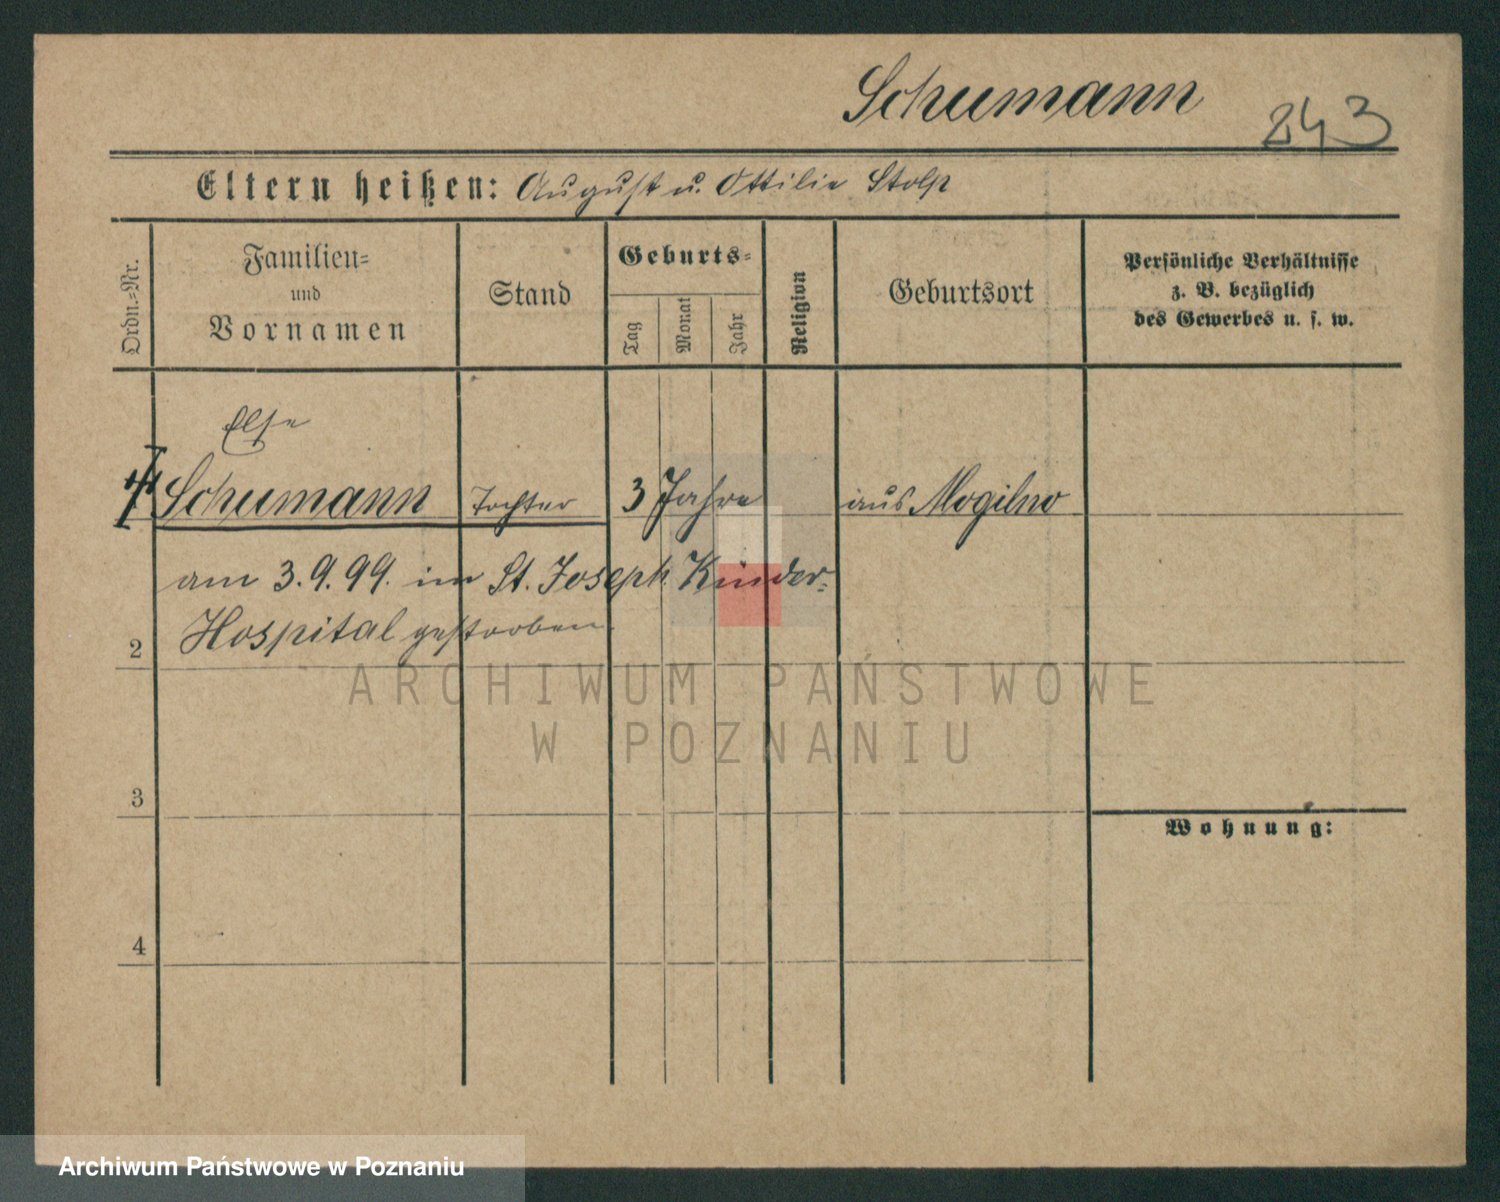 Schumann
243
Eltern heißen: August u. Ottilie Stolp
Ordn.-Nr.
Familien-
und
Vornamen
Stand
Geburts-
Tag
Monat
Jahr
Religion
Geburtsort
Persönliche Verhältnisse
z. B. bezüglich
des Gewerbes u. s. w.
Else
Schumann Tochter 3 Jahre aus Mogilno
am 3.9.99. im St. Joseph Kinder-
Hospital gestorben.
2
3
4
Wohnung:
ARCHIWUM PAŃSTWOWE
W POZNANIU
Archiwum Państwowe w Poznaniu